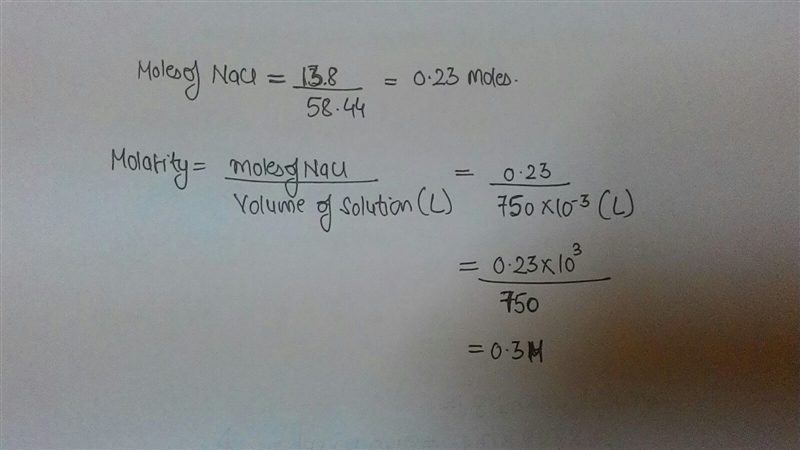 Moles of NaCl = 13.8 / 58.44 = 0.23 moles.
Molarity = moles of NaCl / Volume of solution (L) = 0.23 / 750 × 10⁻³ (L)
= 0.23 × 10³ / 750
= 0.3M